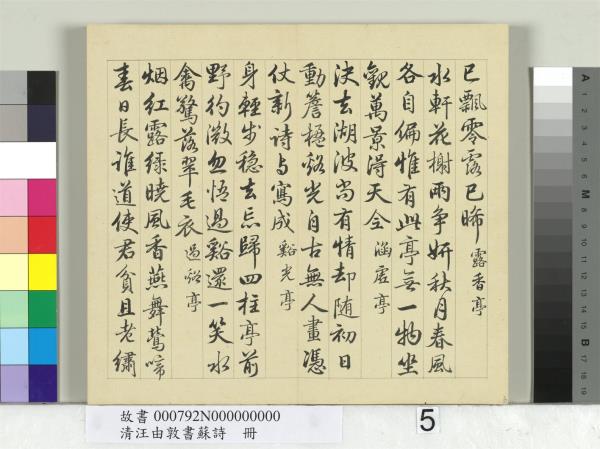 已飄零露已晞 露香亭
水軒花榭兩爭妍秋月春風
各自偏惟有此亭無一物坐
觀萬景得天全 涵虛亭
決去湖波尚有情却随初日
動簷楹谿光自古無人畫憑
仗新詩与寫成 谿光亭
身輕步穩去忘歸四柱亭前
野彴微忽悟過谿還一笑水
禽驚落翠毛衣 過谿亭
烟紅露綠曉風香燕舞鶯啼
春日長誰道使君貧且老繡
故書 000792N000000000
清汪由敦書蘇詩 冊
5
A 1 2 3 4 5 6 M 8 9 10 11 12 13 14 15 B 17 18 19